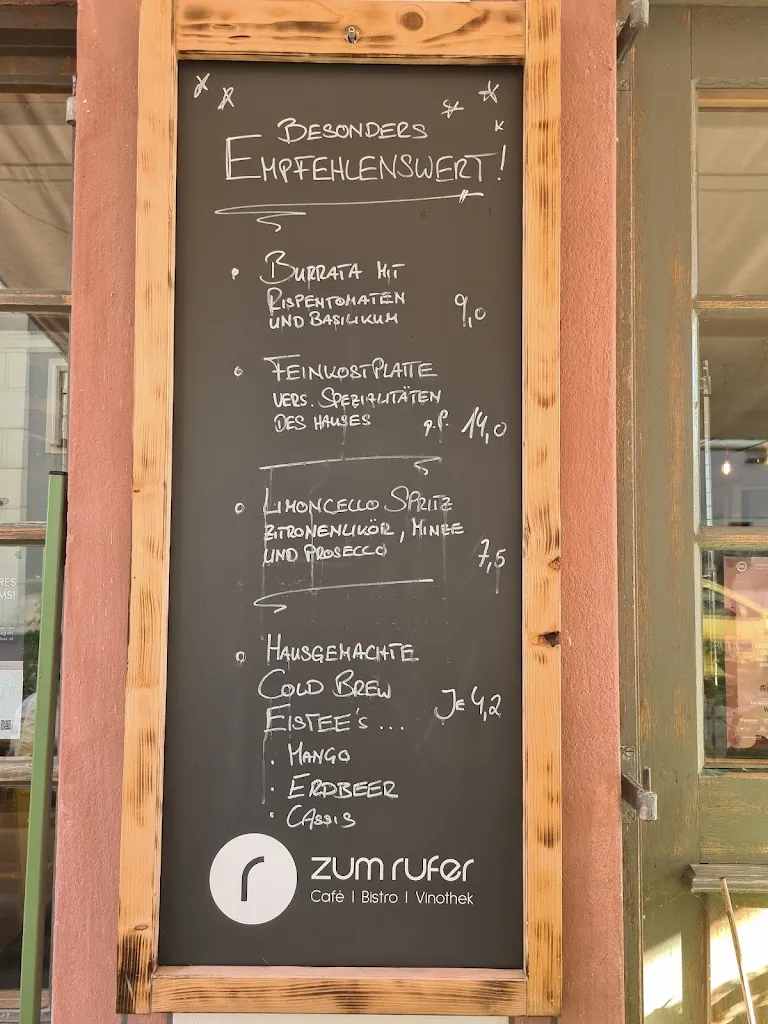 BESONDERS
EMPFEHLENSWERT!
BURRATA MIT
RISPENTOMATEN
UND BASILIKUM 9,0
FEINKOSTPLATTE
VERS. SPEZIALITÄTEN
DES HAUSES p.P. 14,0
LIMONCELLO SPRITZ
ZITRONENLIKÖR, MINZE
UND PROSECCO 7,5
HAUSGEMACHTE
COLD BREW
EISTEE'S ... JE 4,2
· MANGO
· ERDBEER
· CASSIS
r zum rufer
Café | Bistro | Vinothek